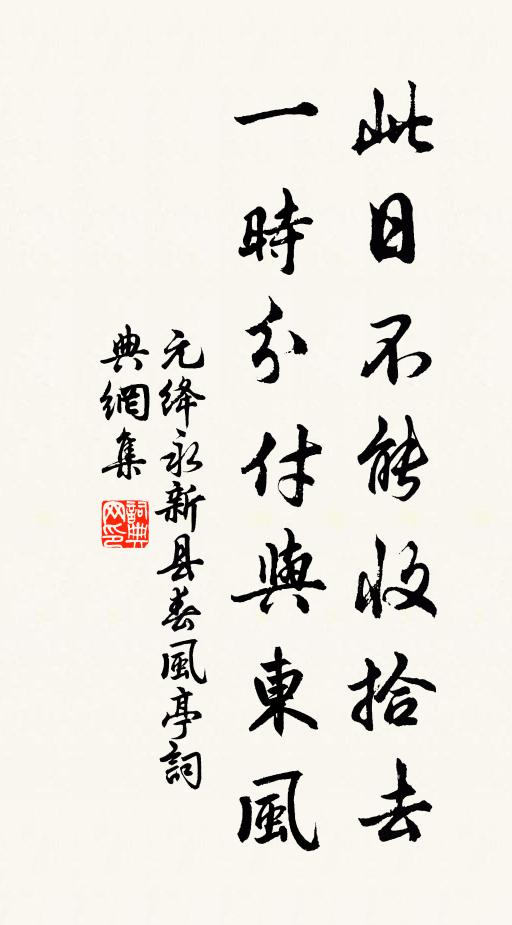 此日不能收拾去
一時分付與東風
元绛永新县春風亭詞
典網集
詞典
网印